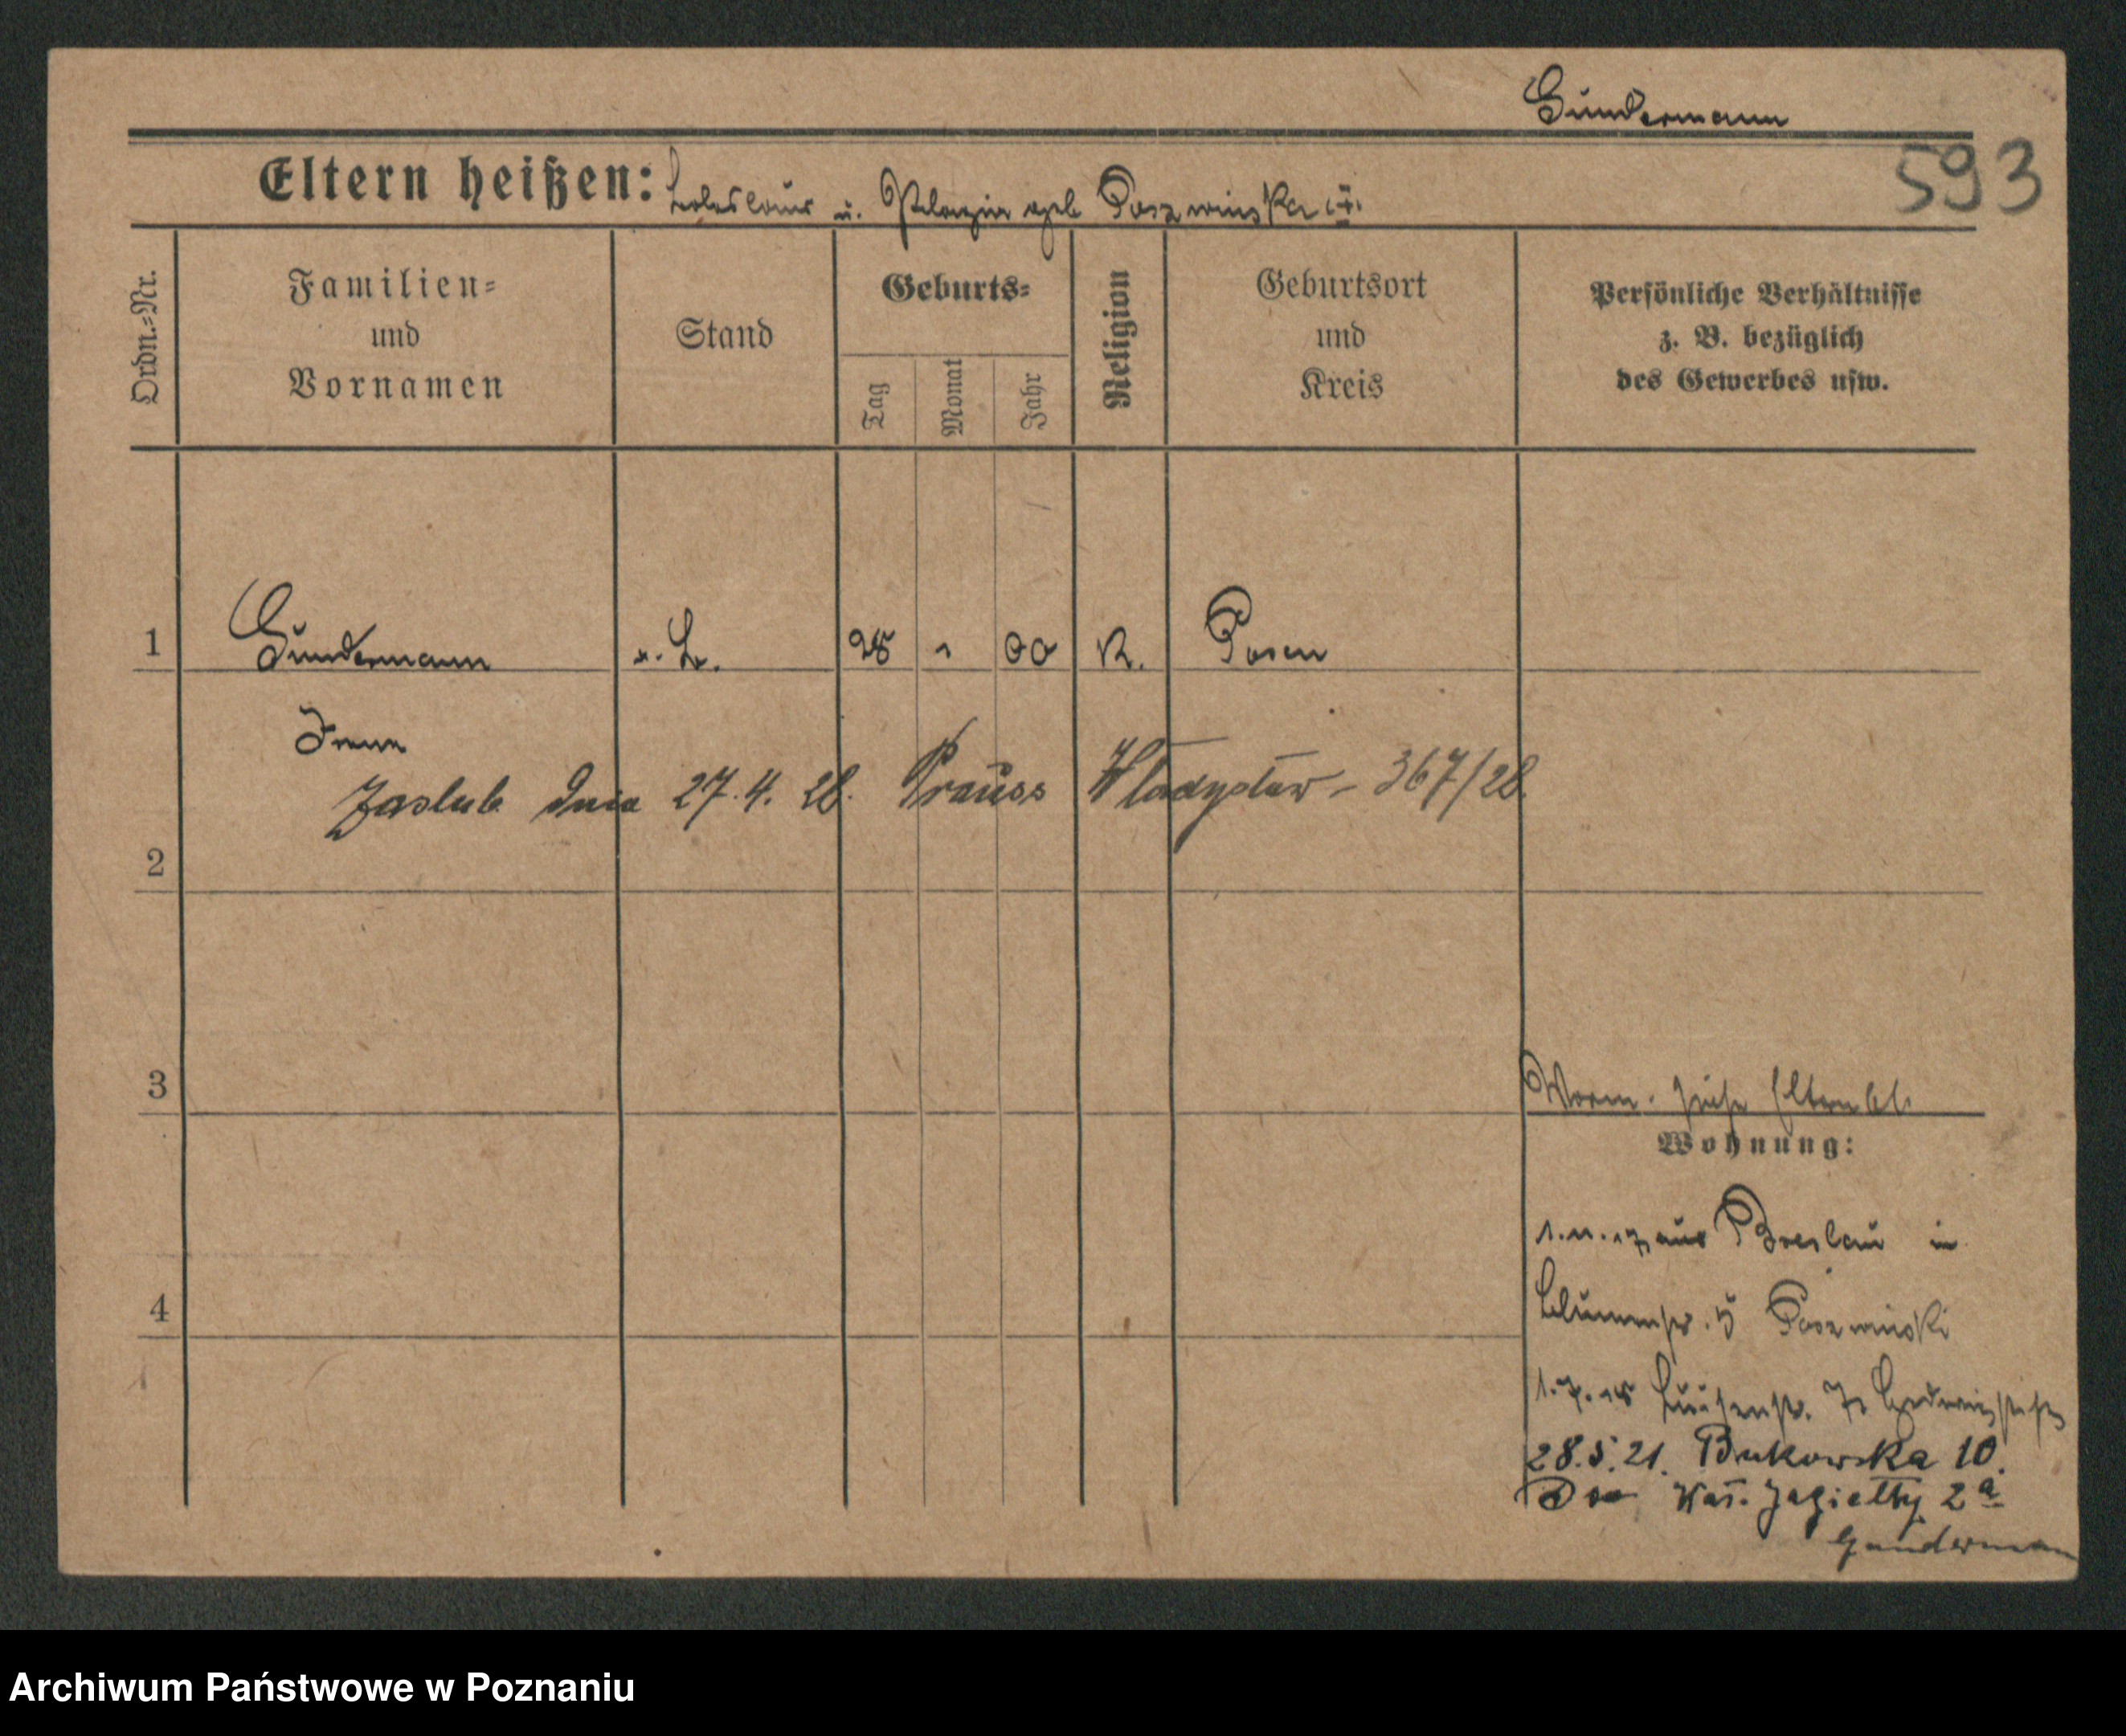 Gundermann
593
Eltern heißen: Boleslaus u. Pelagia geb Poszwinska
Ordn.=Nr.
Familien=
und
Vornamen
Stand
Geburts=
Tag
Monat
Jahr
Religion
Geburtsort
und
Kreis
Persönliche Verhältnisse
z. B. bezüglich
des Gewerbes usw.
1 Gundermann o. B. 28 1 00 K. Posen
Irene
Zaslub. dnia 27.4.28. Prauss Władysław - 367/28.
2
3
Wohnung:
1.11.17 aus Breslau in
4
Blumenstr. 5 Poszwinski
1.7.18 Luisenstr.
28.5.21. Bukowska 10.
Wał. Jagiełły 2a
Gunderman
Archiwum Państwowe w Poznaniu